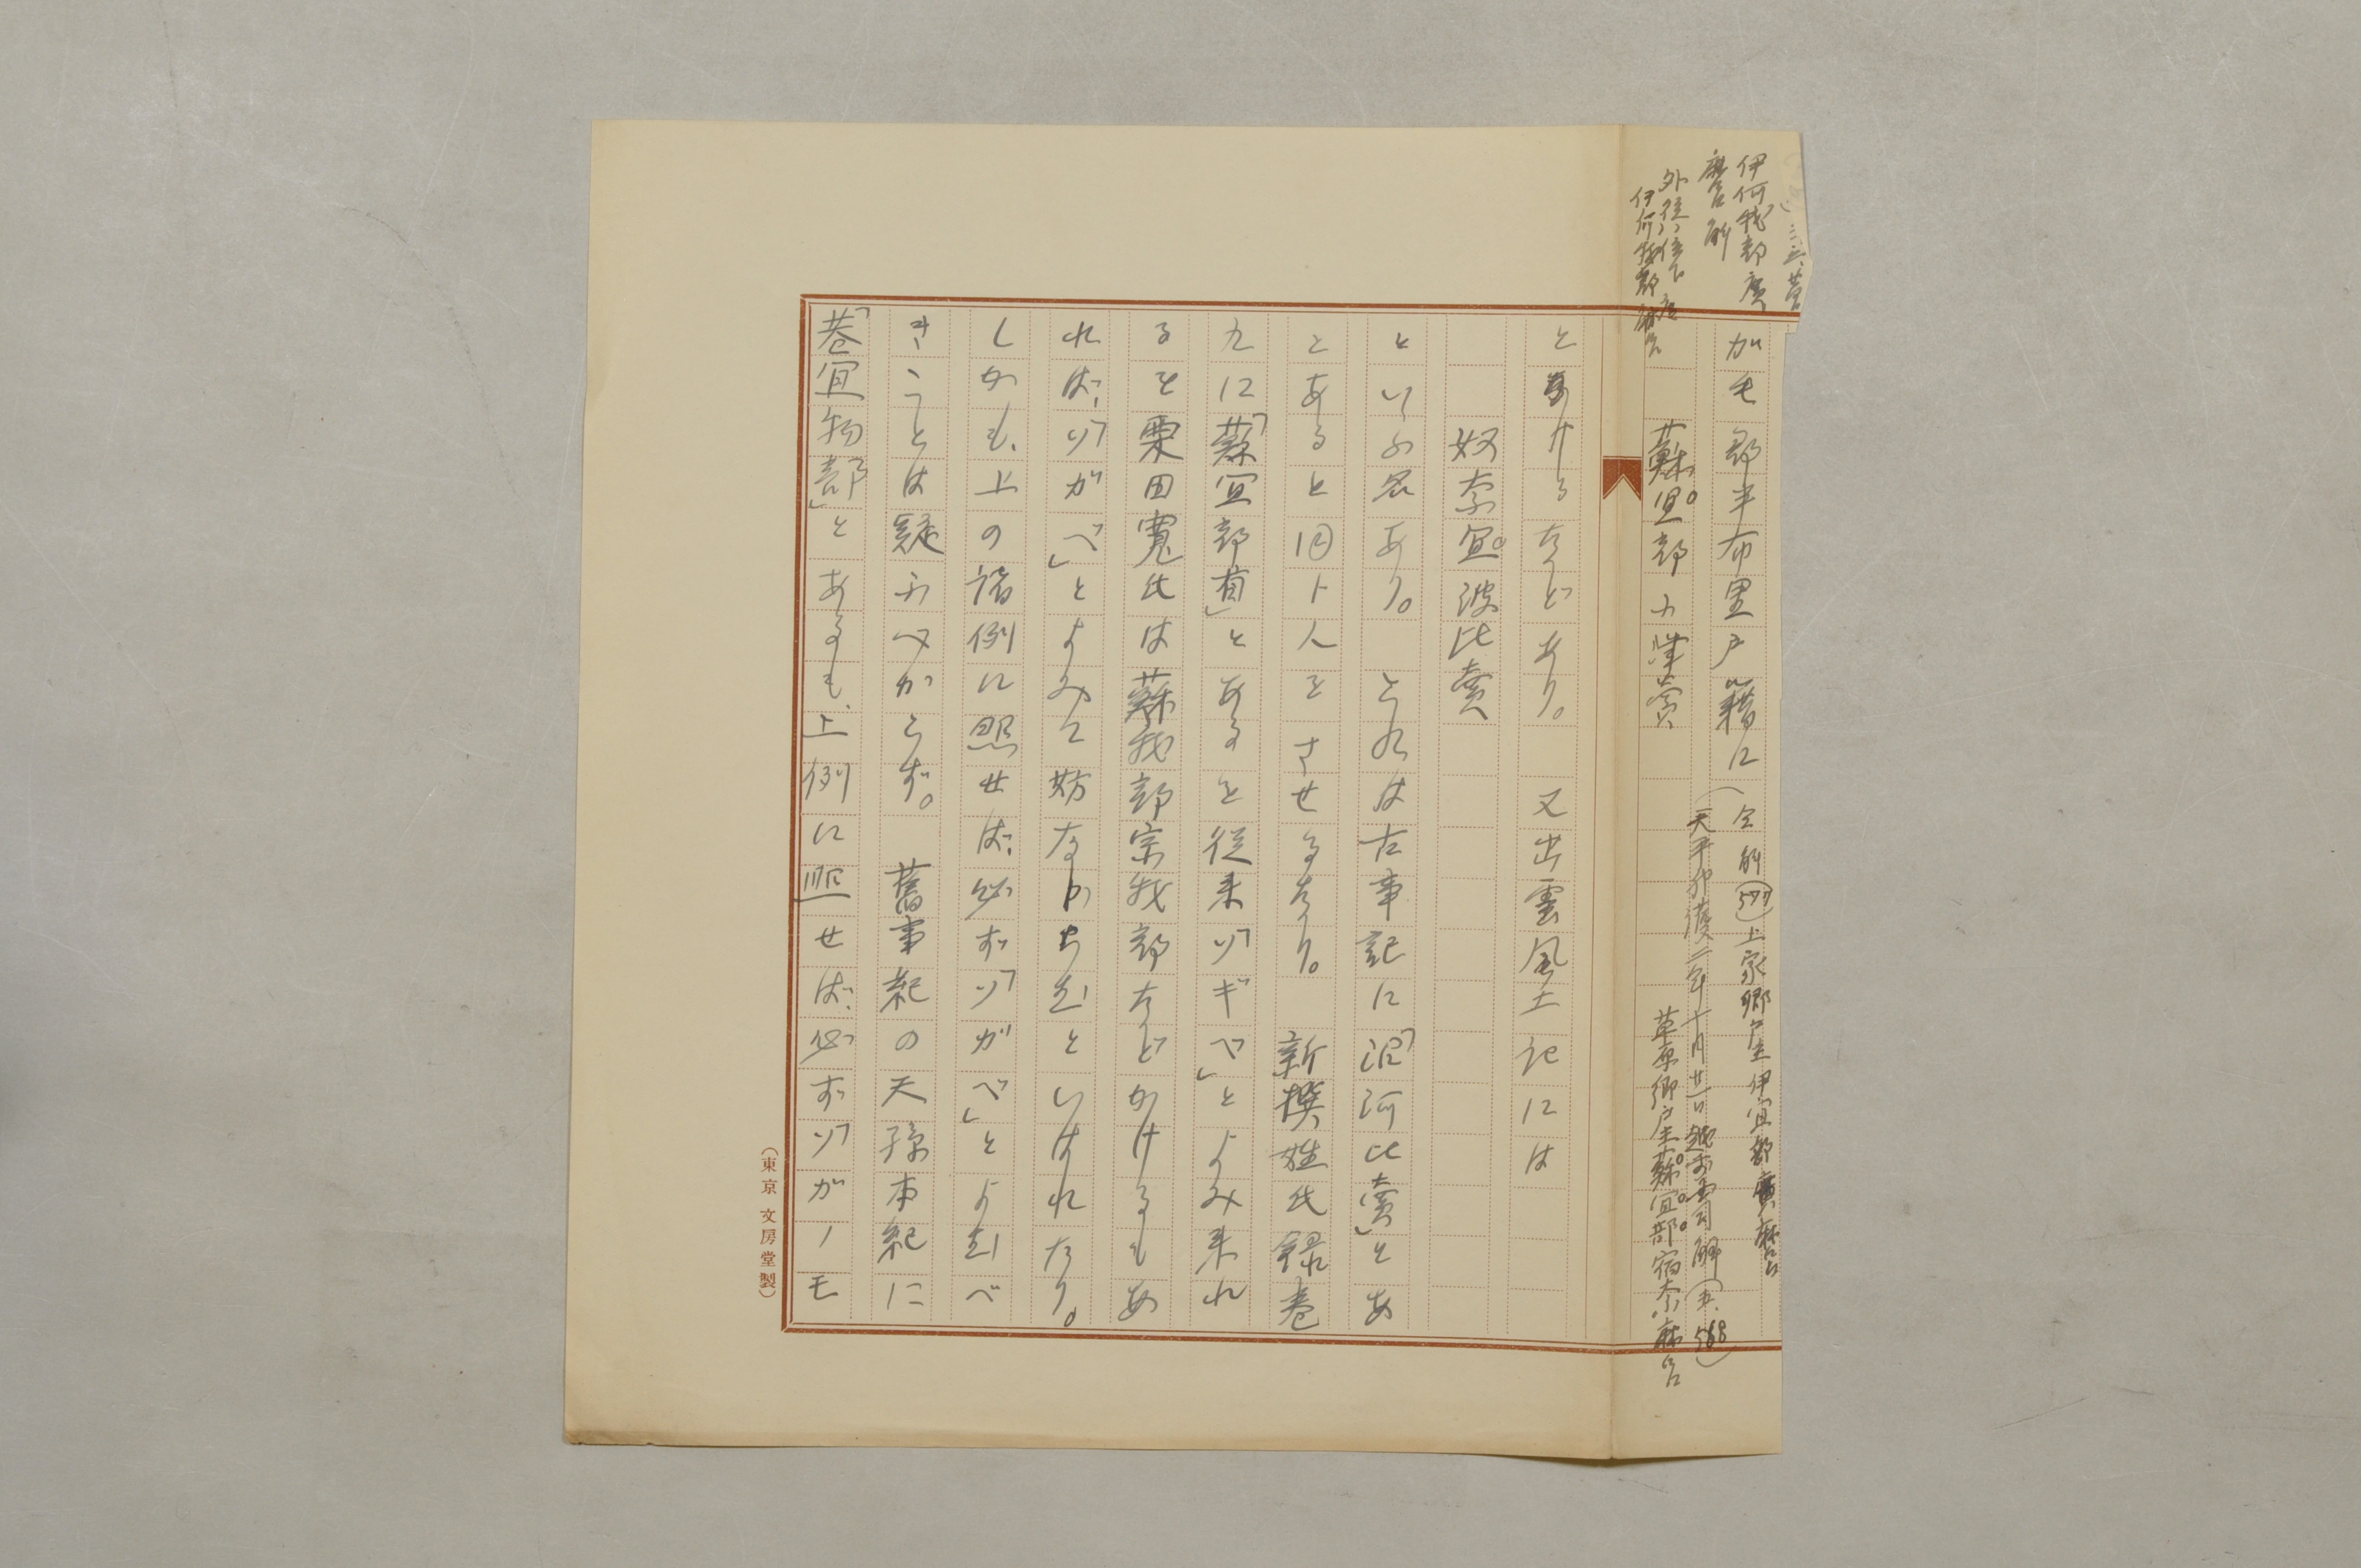 伊何我部廣
麿解
外從八位下
伊何我部
加毛郡半布里戸籍に
上家郷戸主伊宜部廣麻呂
天平神護二年十月廿一日越前國司解(五、568)
蘇宜部小津賣
草原郷戸主蘇宜部宿奈麻呂
とあげるなどあり。又出雲風土記には
奴奈宜波比賣
といふ名あり。これは古事記に「沼河比賣」とあ
とあると同ト人をさせるなり。新撰姓氏録巻
九に「蘇宜部首」とあるを從来「ソギベ」とよみ来れ
るを栗田寛氏は蘇我部宗我部などかけるもあ
れば、「ソガベ」とよみて妨なからむといはれたり。
しかも、上の諸例に照せば、必ず「ソガベ」とよむべ
きことは疑ふべからず。舊事紀の天孫本紀に
「巷宜物部」とあるも、上例に照せば、必ず「ソガノモ
（東京 文房堂製）